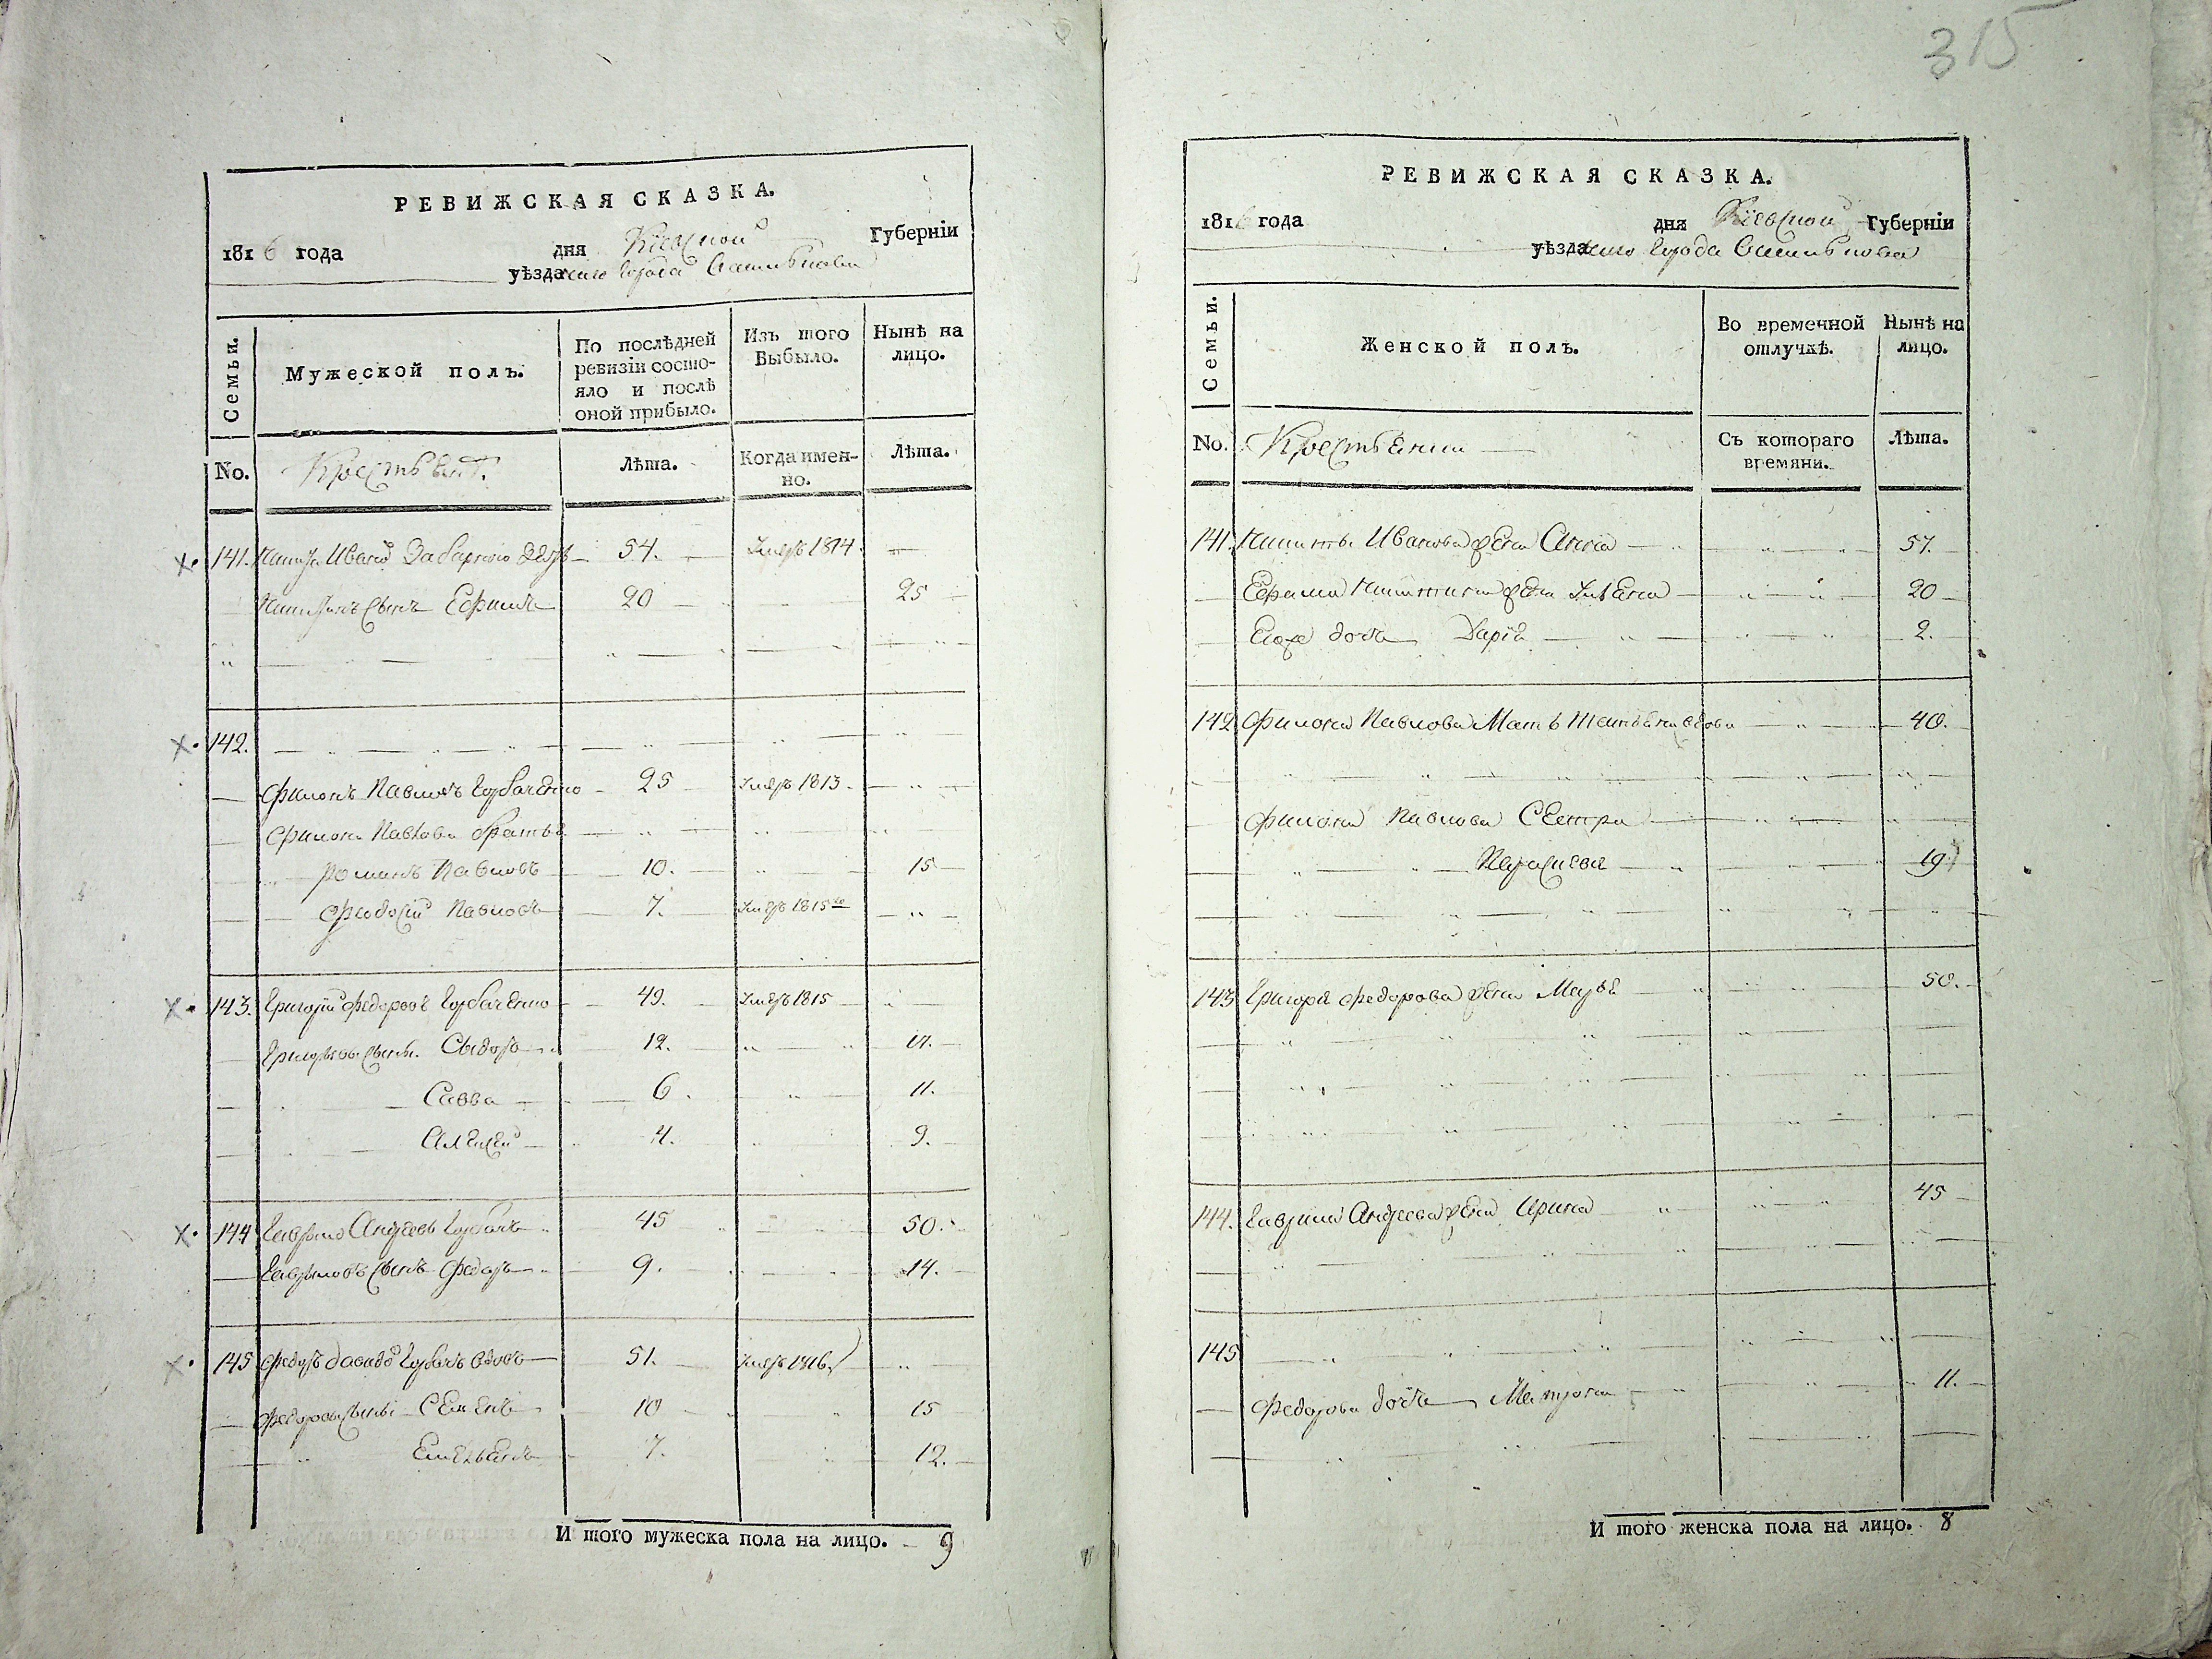 315
РЕВИЖСКАЯ СКАЗКА.
1816 года дня Кіевской Губерніи
уѣзда города Василькова
Семьи.
Мужеской полъ.
По послѣдней ревизіи состояло и послѣ оной прибыло.
Изъ того Выбыло.
Нынѣ на лицо.
No. Крестьянъ. Лѣта. Когда именно. Лѣта.
141. Никита Ивановъ 54. умеръ 1814
Никитинъ сынъ Ефимъ 20 25
142.
Филонъ Павловъ Горбаченко 25 умеръ 1813.
Филона Павлова братья
Романъ Павловъ 10. 15
Феодосій Павловъ 7. умеръ 1815го
143. Григорій Федоровъ Горбаченко 49. умеръ 1815
Григорьевы сыны. Сидоръ 12. 17.
Савва 6. 11.
Алексей 4. 9.
144 Гаврило Андреевъ Горбачъ 45 50.
Гавриловъ сынъ Федоръ 9. 14.
145 Федоръ Давидовъ Горбачъ вдовъ 51. умеръ 1816.
Федоровы сыны Семенъ 10 15
Емельянъ 7. 12.
И того мужеска пола на лицо. 9
РЕВИЖСКАЯ СКАЗКА.
1816 года дня Кіевской Губерніи
уѣзда города Василькова
Семьи.
Женской полъ.
Во временной отлучкѣ.
Нынѣ на лицо.
No. Крестьянки Съ котораго времяни. Лѣта.
141. Никиты Иванова жена Анна 57.
Ефима Никитина жена Ульяна 20
Егоже дочь Дарія 2.
142 Филона Павлова Мать Татьяна вдова 40.
Филона Павлова Сестра
Параскева 19
143 Григорія Федорова жена Марья 50.
144. Гаврила Андреева жена Ирина 45
145
Федорова дочь Матрона 11.
И того женска пола на лицо. 8